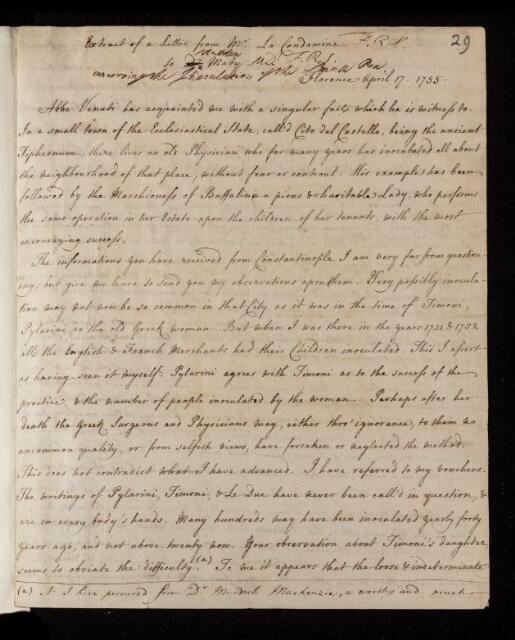 29
Extract of a Letter from Mr. La Condamine F.R.S.
to Dr Maty M.D. F.R.S.
concerning the Inoculation of the Small Pox
Florence April 17. 1755.
Abbé Venuti has acquainted me with a singular fact, which he is witness to.
In a small town of the Ecclesiastical State, call'd Cito del Castello, being the ancient
Tiphernum, there lives an old Physician who for many years has inoculated all about
the neighbourhood of that place, without fear or controul. His example has been
followed by the Marchioness of Buffalini a pious & charitable Lady, who performs
the same operation in her Estate upon the children of her tenants, with the most
encouraging success.
The informations you have received from Constantinople I am very far from question-
ing; but give me leave to send you my observations upon them. Very possibly inocula-
tion may not now be so common in that City as it was in the time of Timoni,
Pylarini, or the old Greek woman. But when I was there in the years 1731 & 1732
all the English & French Merchants had their Children inoculated. This I assert
as having seen it myself. Pylarini agrees with Timoni as to the success of the
practice, & the number of people inoculated by the woman. Perhaps after her
death the Greek Surgeons and Physicians may, either thro' ignorance, to them no
uncommon quality, or from selfish views, have forsaken or neglected the method.
This does not contradict what I have advanced. I have referred to my vouchers.
The writings of Pylarini, Timoni, & Le Duc have never been call'd in question, &
are in every body's hands. Many hundreds may have been inoculated yearly forty
years ago, and not above twenty now. Your observation about Timoni's daughter
seems to obviate the difficulty. (a) To me it appears that the loose & indeterminate
(a) I have procured from Dr. Mackenzie, a worthy and much